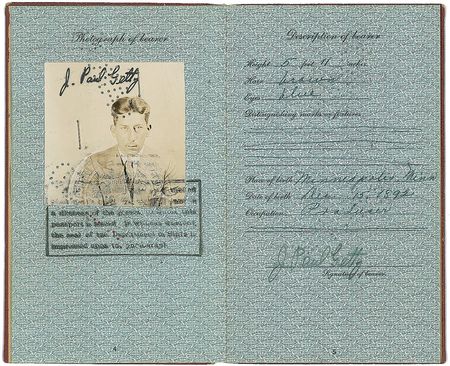 Photograph of bearer
J. Paul Getty
a likeness of the person to whom this
passport is issued. In witness whereof
the seal of the Department of State is
impressed upon the photograph
4
Description of bearer
Height 5 feet 11 inches
Hair brown
Eyes blue
Distinguishing marks or features
Place of birth Minneapolis, Minn
Date of birth Dec. 15, 1892
Occupation Producer
J. Paul Getty
Signature of bearer
5